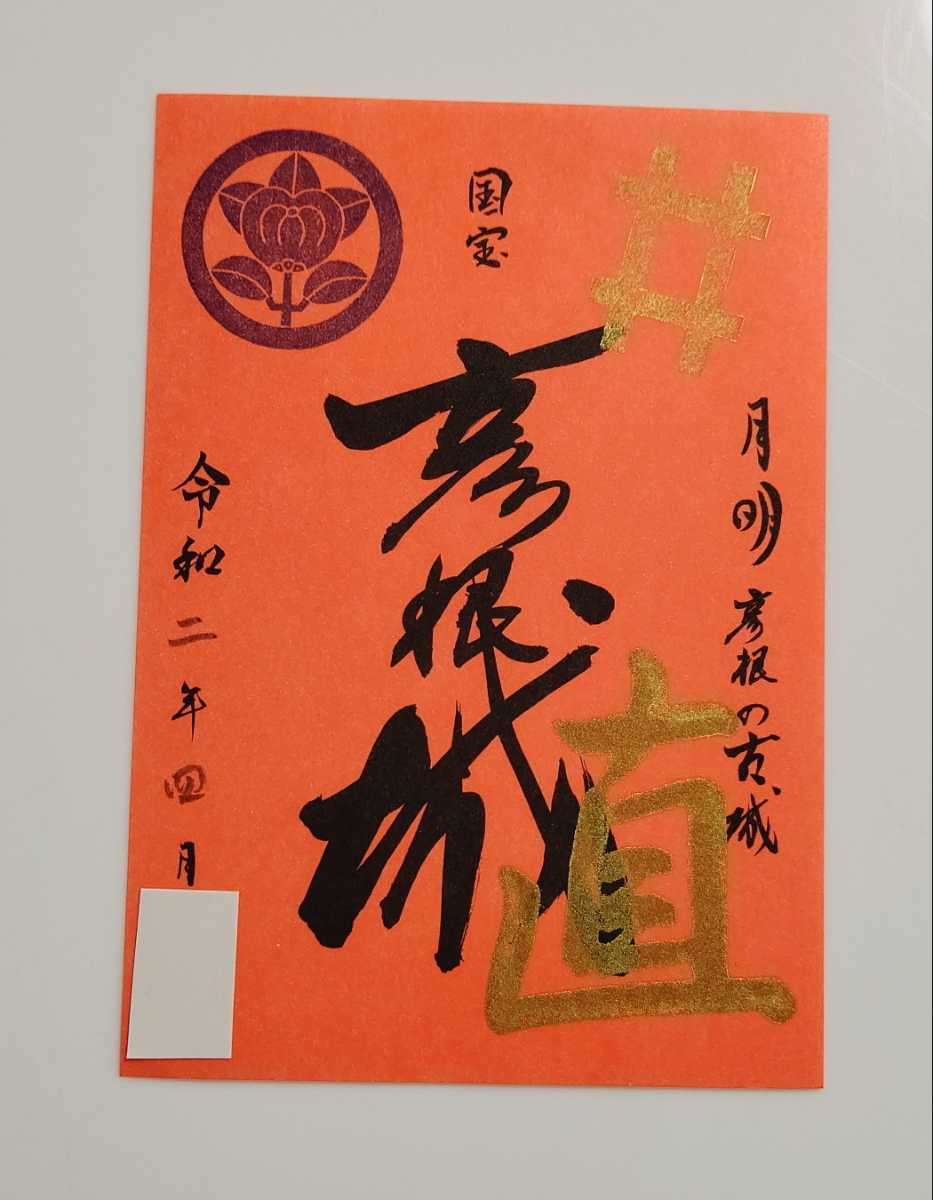 井
月明彦根の古城
直
国宝
彦根城
令和二年四月